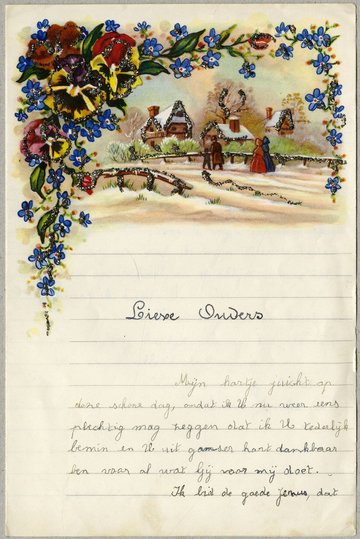 Lieve Ouders
Mijn hartje juicht op
deze schone dag, omdat ik U nu weer eens
plechtig mag zeggen dat ik U tederlijk
bemin en U uit ganser hart dankbaar
ben voor al wat Gij voor mij doet.
Ik bid de goede Jezus, dat